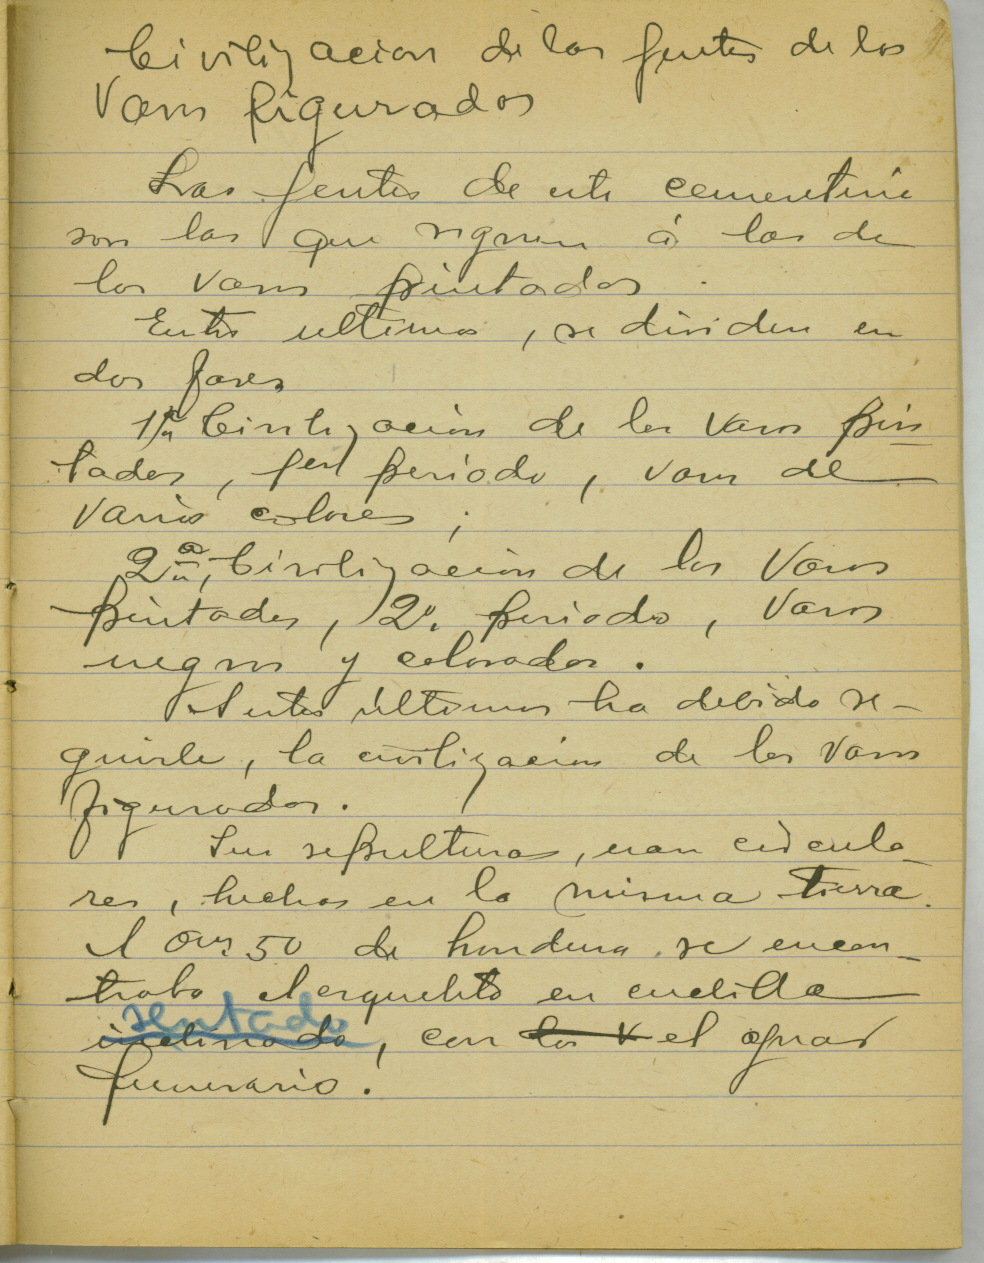 Civilizacion de las gentes de los
Vasos figurados
Las gentes de este cementerio
son las que siguen á las de
los vasos pintados.
Estos ultimos, se dividen en
dos fases
1ª Civilización de los vasos pin
tados, 1er periodo, vasos de
varios colores;
2ª Civilización de los Vasos
pintados, 2º periodo, Vasos
negros y colorados.
A estos últimos ha debido se-
guirle, la civilización de los vasos
figurados.
Sus sepulturas, eran circula
res, hechas en la misma tierra.
A 0m50 de hondura se encon-
traba el esqueleto en cuclilla
sentado
inclinado, con los v el ajuar
funerario.